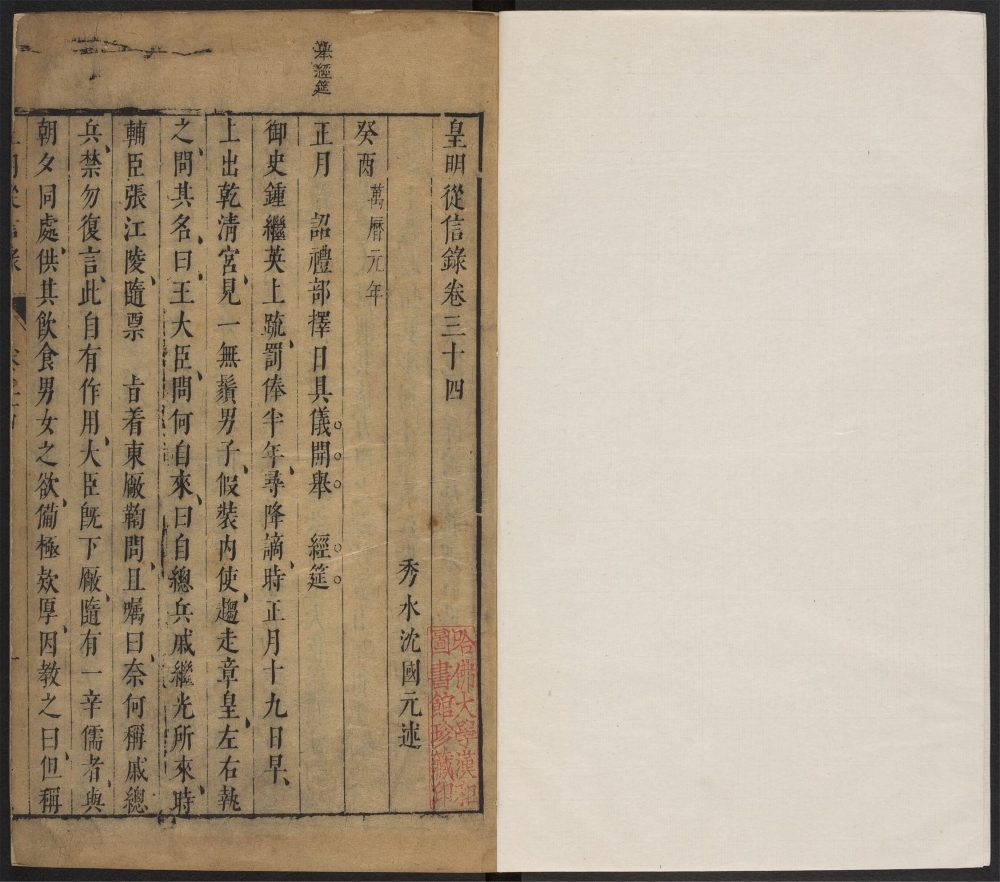 舉經筵
皇明從信錄卷三十四
秀水沈國元述
癸酉 萬曆元年
正月 詔禮部擇日具儀開舉 經筵
御史鍾繼英上疏、罰俸半年、尋降謫、時正月十九日早、
上出乾清宮、見一無鬚男子、假裝内使、趨走章皇、左右執
之、問其名、曰、王大臣、問何自來、曰自總兵戚繼光所來、時
輔臣張江陵、隨票 旨着東廠鞫問、且囑曰、奈何稱戚總
兵、禁勿復言、此自有作用、大臣旣下廠、隨有一辛儒者、與
朝夕同處、供其飮食男女之欲、備極欵厚、因教之曰、但稱
哈佛大學漢和
圖書館珍藏印